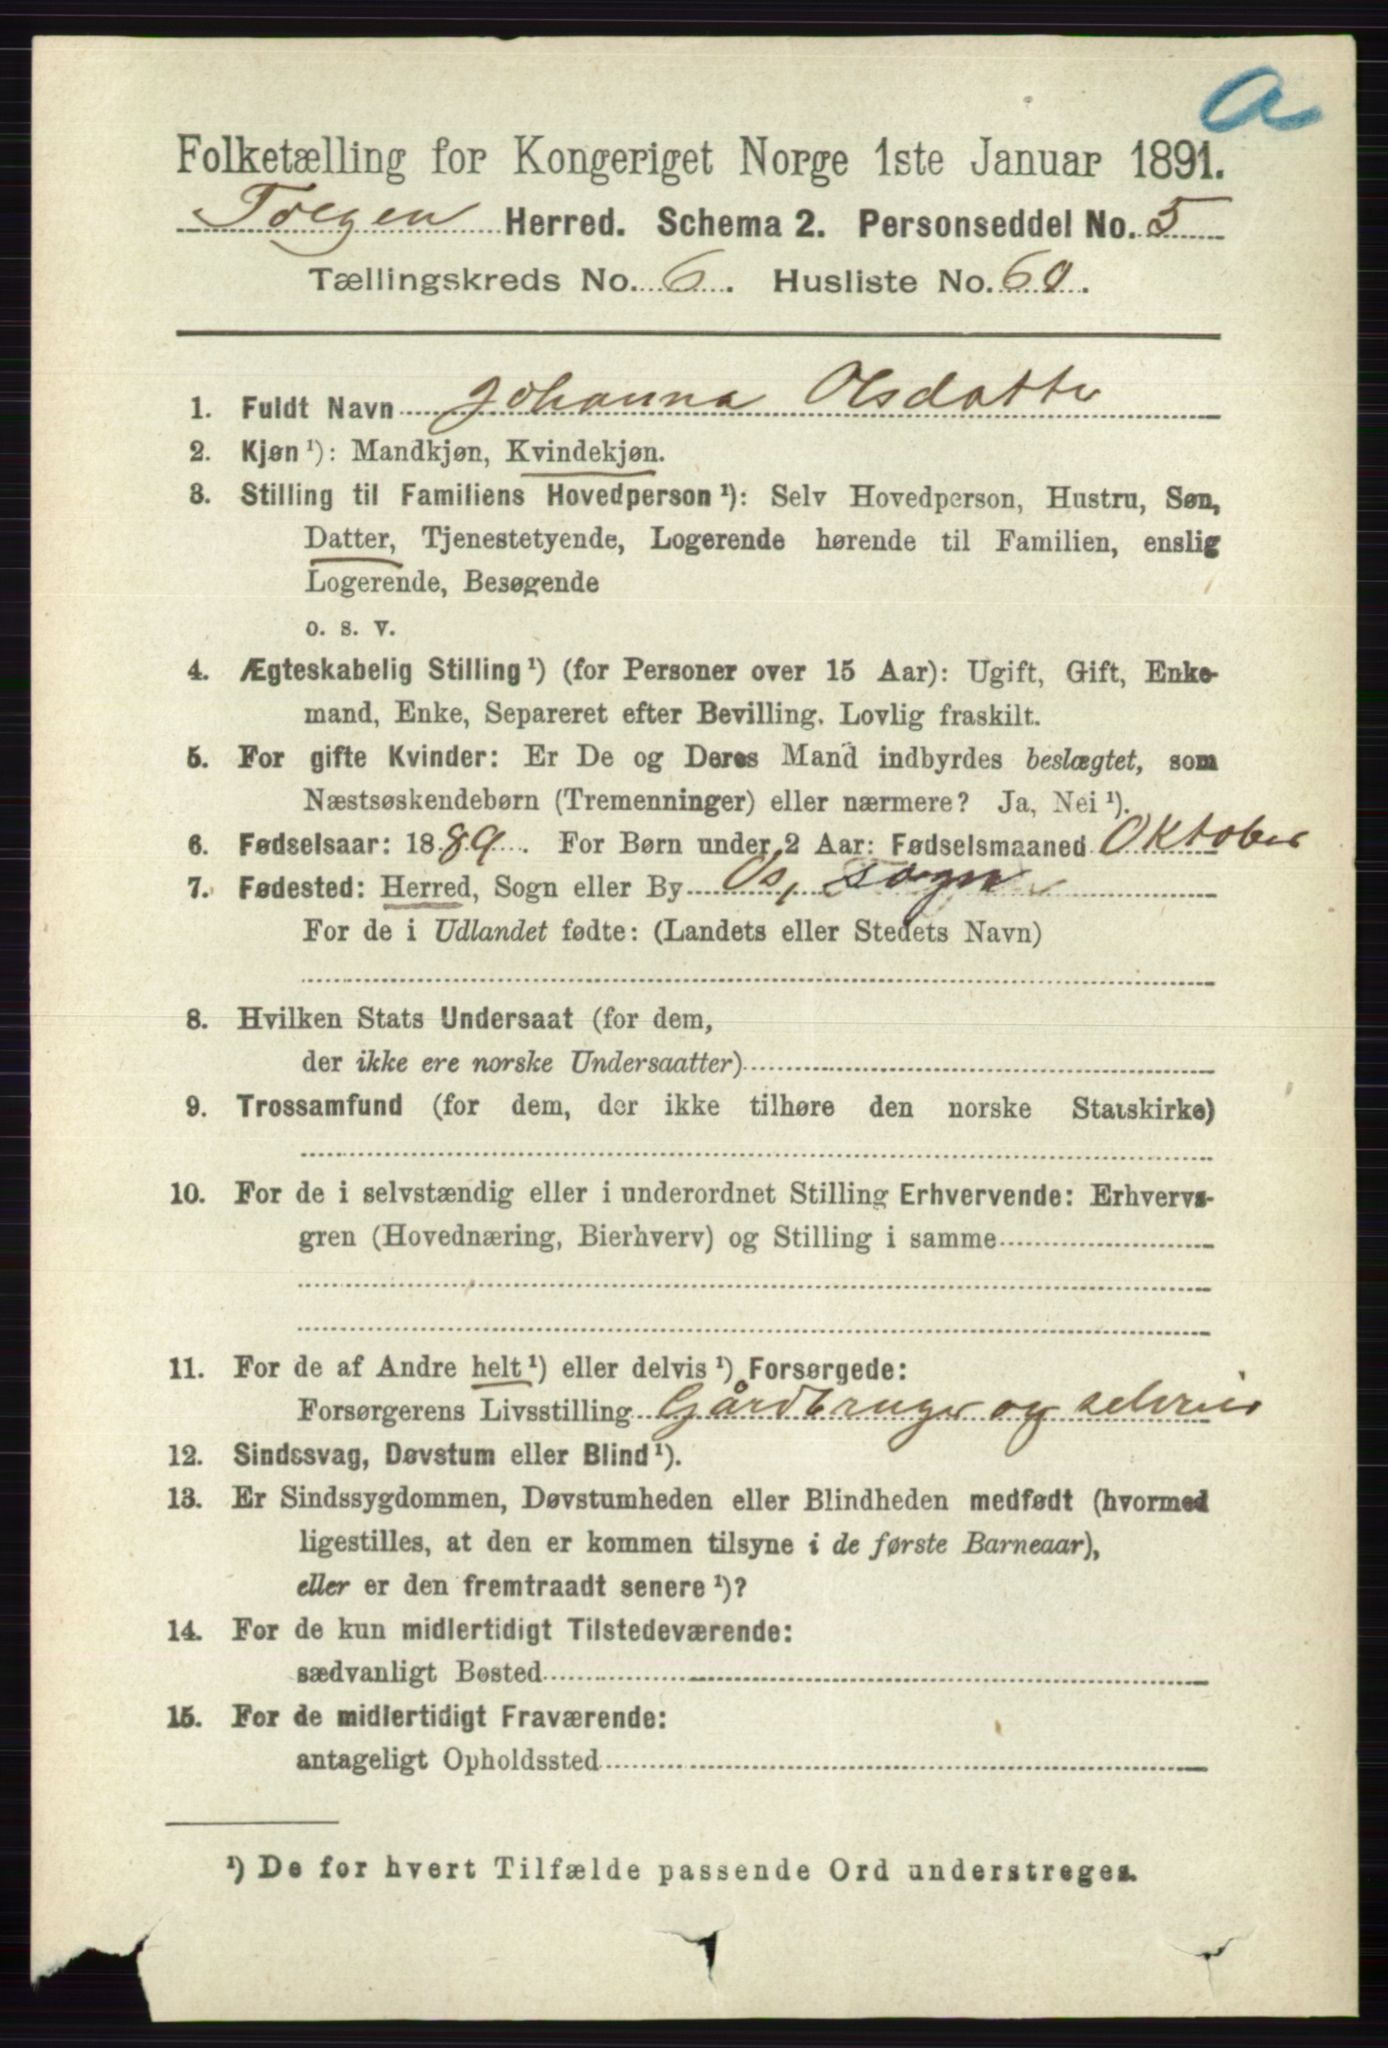 a
Folketælling for Kongeriget Norge 1ste Januar 1891.
Tolgen Herred. Schema 2. Personseddel No. 5
Tællingskreds No. 6. Husliste No. 60.
1. Fuldt Navn Johanna Olsdatter
2. Kjøn ¹): Mandkjøn, Kvindekjøn.
3. Stilling til Familiens Hovedperson ¹): Selv Hovedperson, Hustru, Søn,
Datter, Tjenestetyende, Logerende hørende til Familien, enslig
Logerende, Besøgende
o. s. v.
4. Ægteskabelig Stilling ¹) (for Personer over 15 Aar): Ugift, Gift, Enke-
mand, Enke, Separeret efter Bevilling. Lovlig fraskilt.
5. For gifte Kvinder: Er De og Deres Mand indbyrdes beslægtet, som
Næstsøskendebørn (Tremenninger) eller nærmere? Ja, Nei ¹).
6. Fødselsaar: 1889. For Børn under 2 Aar: Fødselsmaaned Oktober
7. Fødested: Herred, Sogn eller By Os, sogn
For de i Udlandet fødte: (Landets eller Stedets Navn)
8. Hvilken Stats Undersaat (for dem,
der ikke ere norske Undersaatter)
9. Trossamfund (for dem, der ikke tilhøre den norske Statskirke)
10. For de i selvstændig eller i underordnet Stilling Erhvervende: Erhvervs-
gren (Hovednæring, Bierhverv) og Stilling i samme
11. For de af Andre helt ¹) eller delvis ¹) Forsørgede:
Forsørgerens Livsstilling Gårdbruger og selveier
12. Sindssvag, Døvstum eller Blind ¹).
13. Er Sindssygdommen, Døvstumheden eller Blindheden medfødt (hvormed
ligestilles, at den er kommen tilsyne i de første Barneaar),
eller er den fremtraadt senere ¹)?
14. For de kun midlertidigt Tilstedeværende:
sædvanligt Bosted
15. For de midlertidigt Fraværende:
antageligt Opholdssted
¹) De for hvert Tilfælde passende Ord understreges.